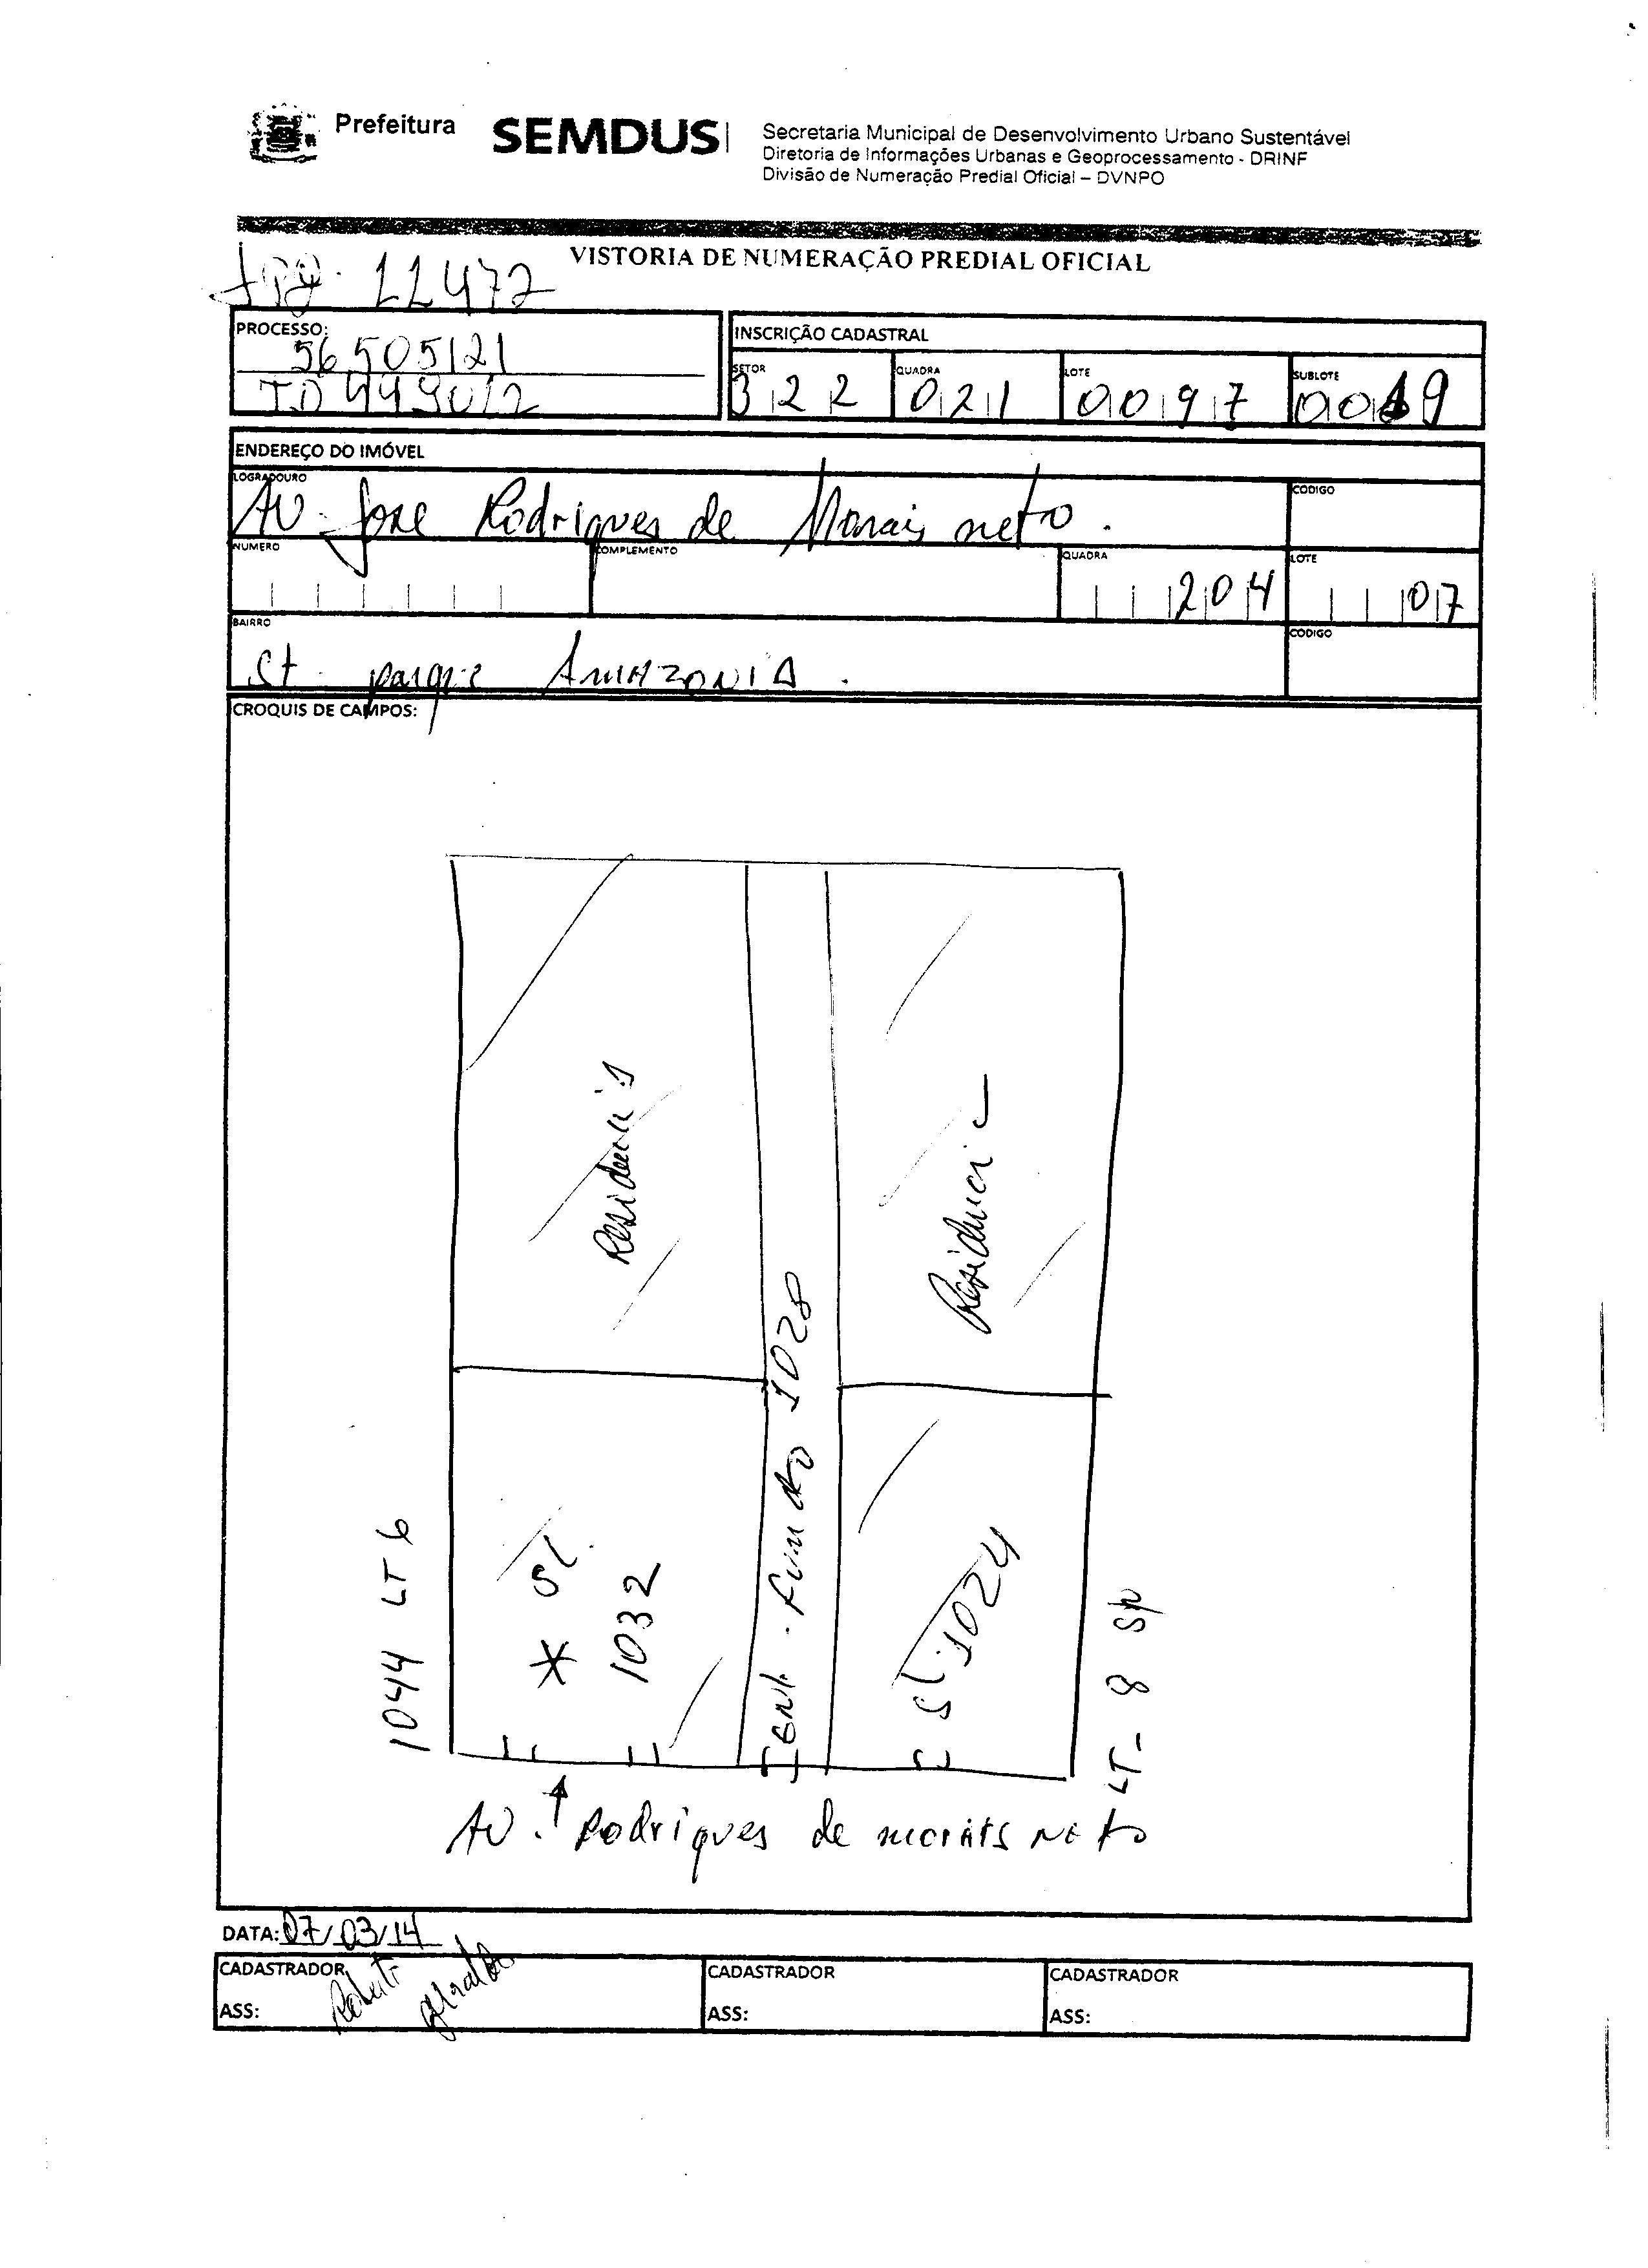 Prefeitura SEMDUS
Secretaria Municipal de Desenvolvimento Urbano Sustentável
Diretoria de Informações Urbanas e Geoprocessamento - DRINF
Divisão de Numeração Predial Oficial – DVNPO
VISTORIA DE NUMERAÇÃO PREDIAL OFICIAL
11472
PROCESSO:
56505121
INSCRIÇÃO CADASTRAL
SETOR 322 QUADRA 021 LOTE 0097 SUBLOTE 0019
ENDEREÇO DO IMÓVEL
LOGRADOURO CODIGO
AV. Jose Rodrigues de Morais neto.
NUMERO COMPLEMENTO QUADRA 204 LOTE 07
BAIRRO CODIGO
St. parque AMAZONIA.
CROQUIS DE CAMPOS:
Residencia
Residencia
1044 LT 6
* SL
1032
Ent. fundo 1028
SL 1024
LT- 8
AV. Rodrigues de morais NETO
DATA: 07/03/14
CADASTRADOR CADASTRADOR CADASTRADOR
ASS: ASS: ASS: